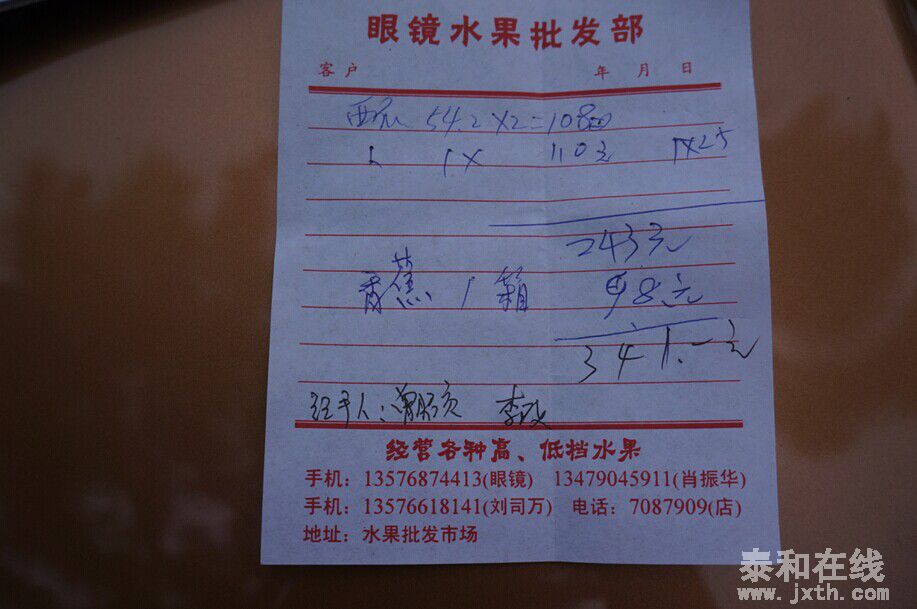 眼镜水果批发部
客户 年 月 日
54.2×2=108
1× 110元 1×25
243元
香蕉 1箱 98元
341.一元
经手人: 李
经营各种高、低挡水果
手机：13576874413(眼镜) 13479045911(肖振华)
手机：13576618141(刘司万) 电话：7087909(店)
地址：水果批发市场
泰和在线
www.jxth.com